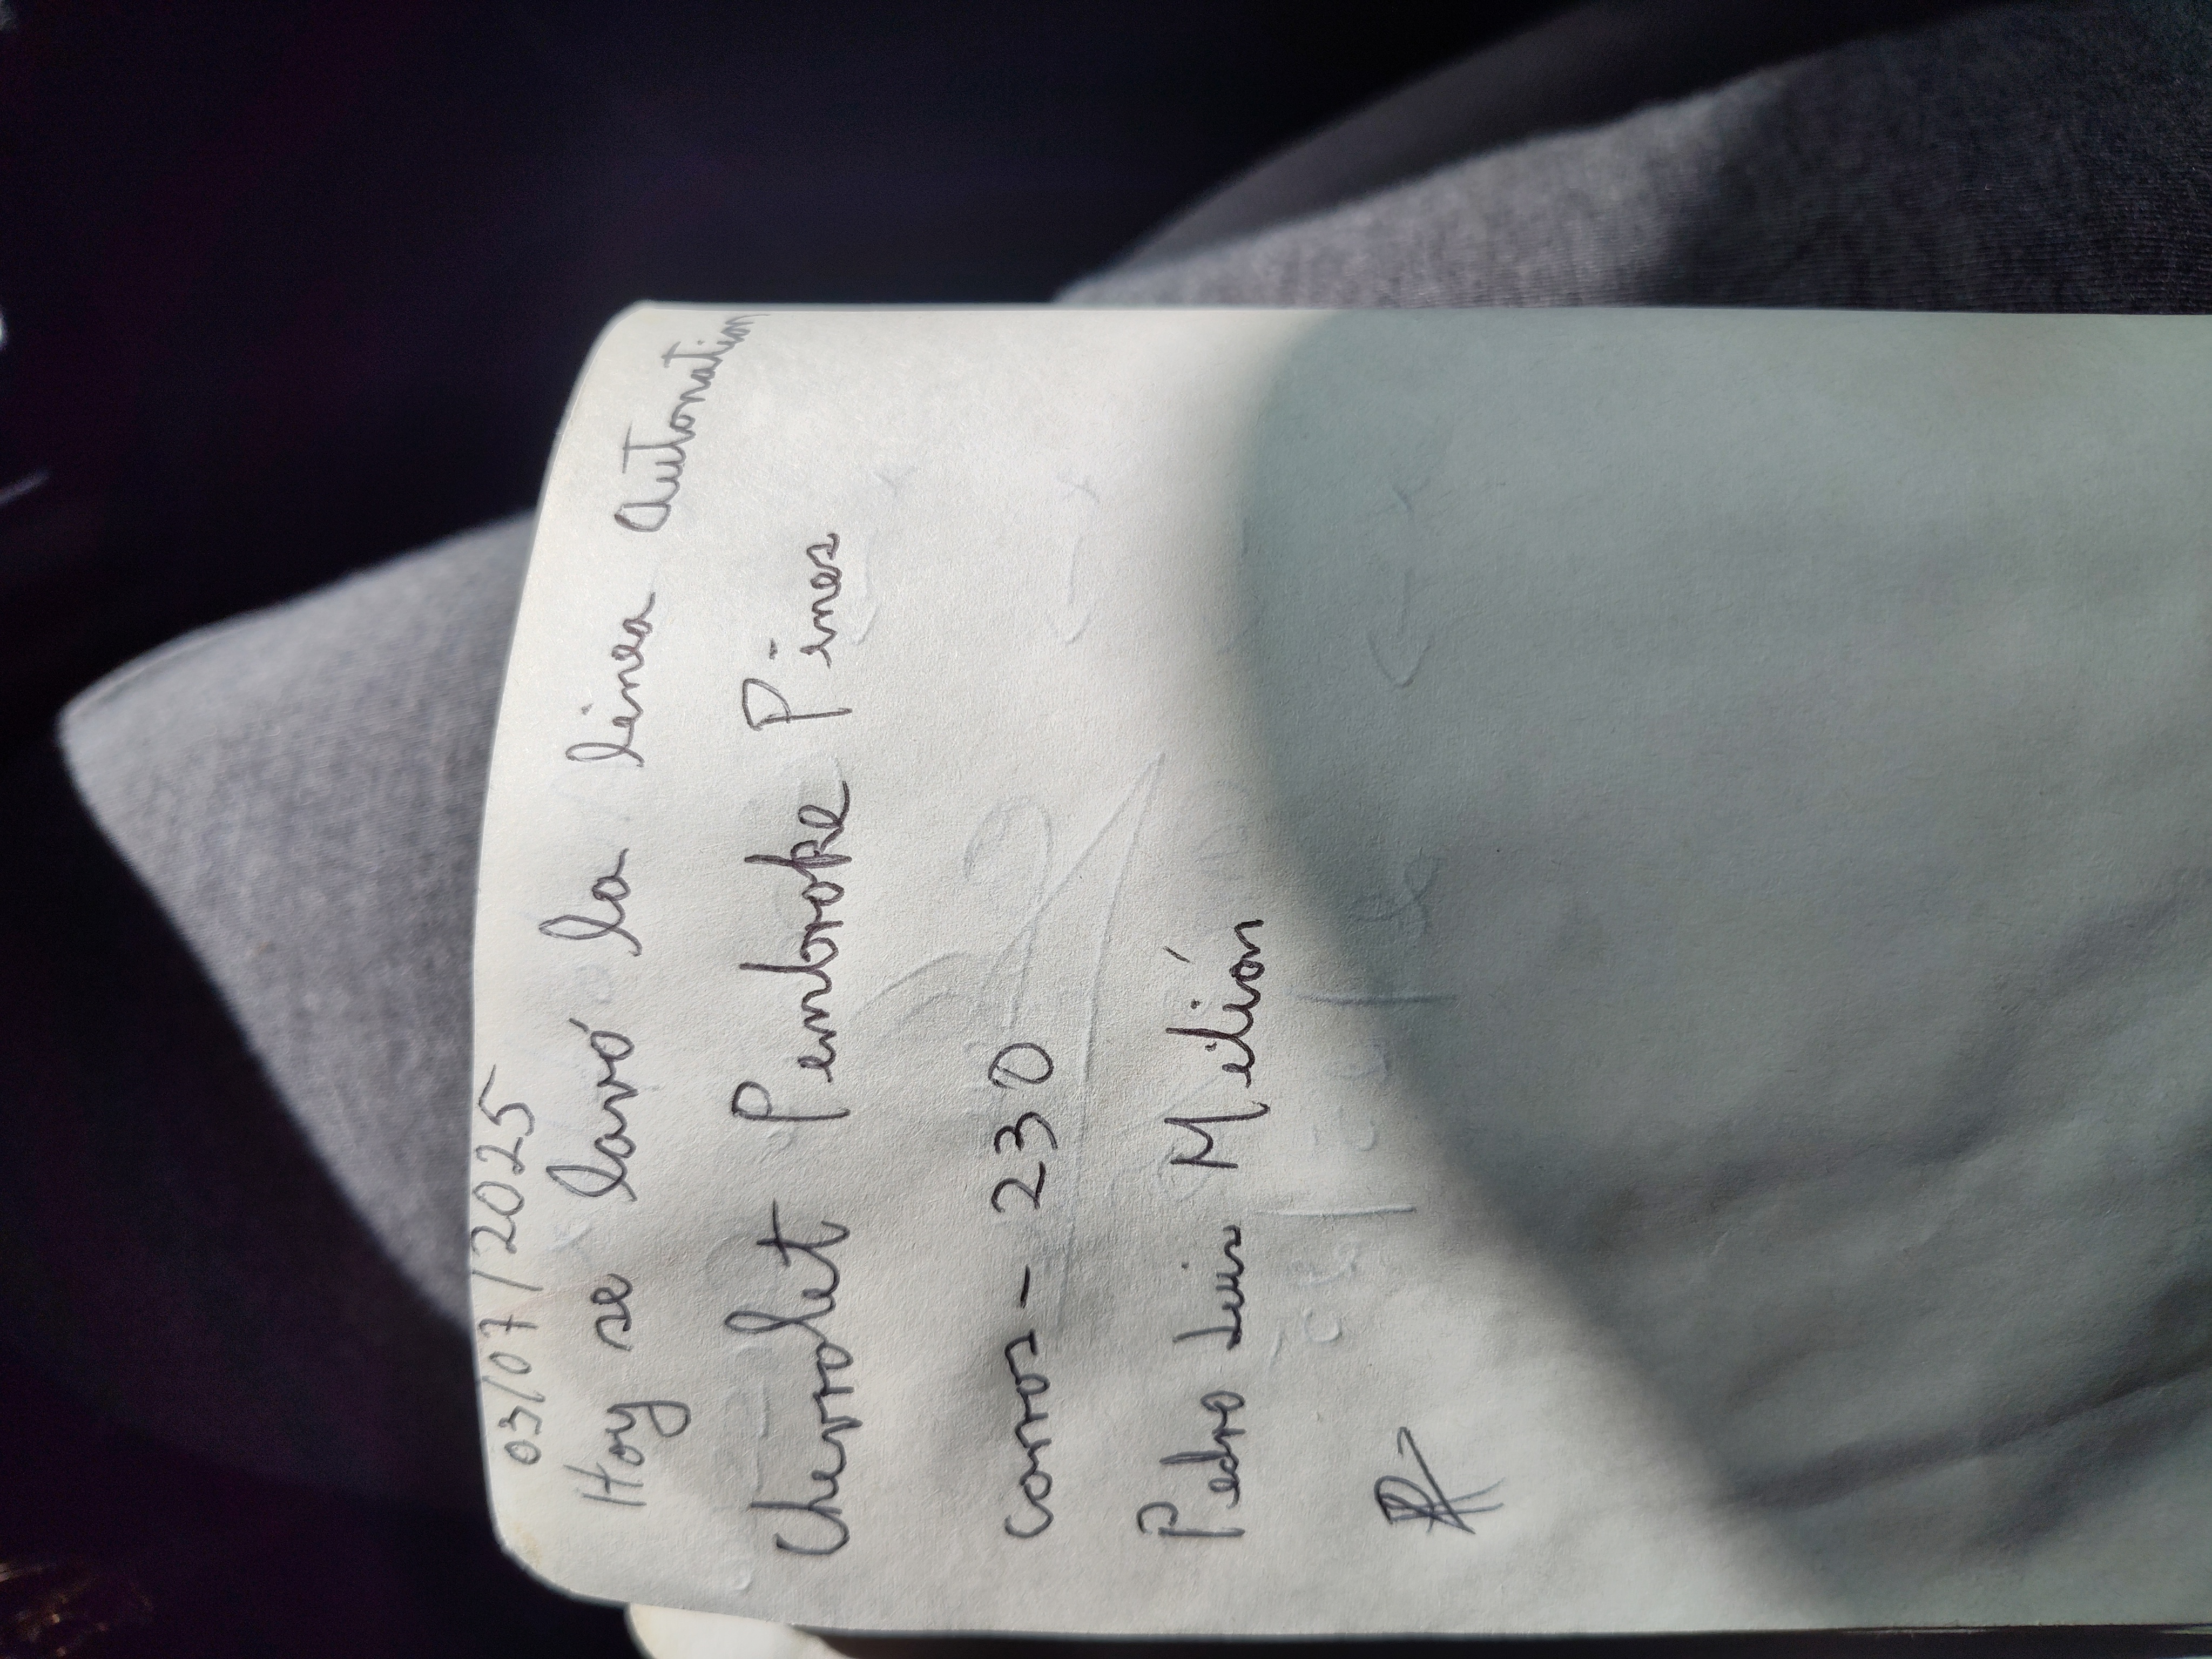 03/07/2025
Hoy se lavó la linea Autonation
Chevrolet Pembroke Pines
carros - 230
Pedro Luis Milián